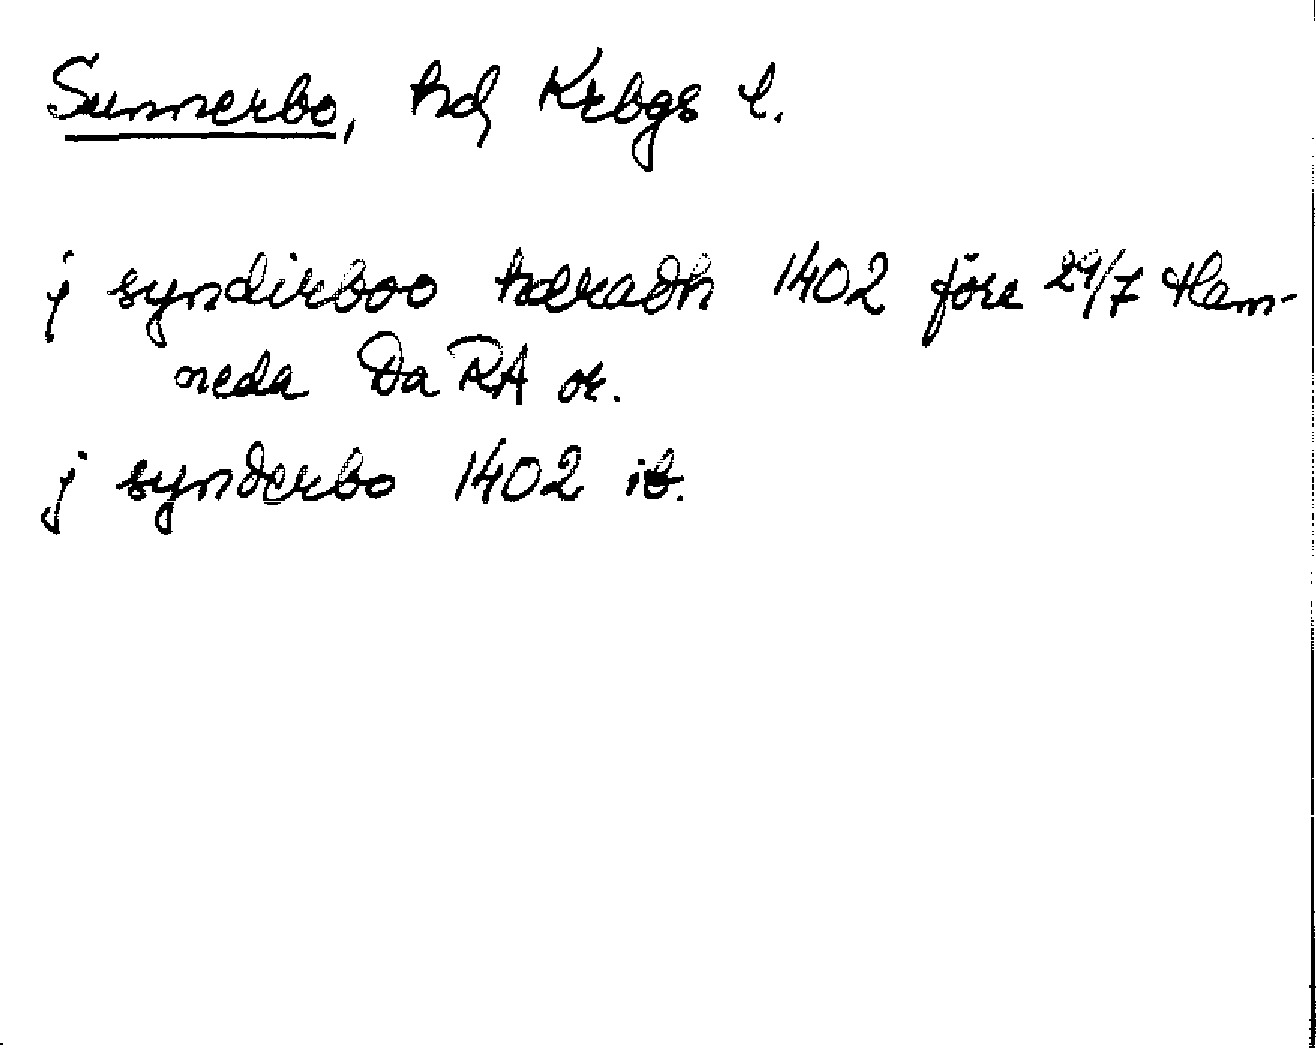 Sunnerbo, hd, Krbgs l.
j syndirboo hæradh 1402 före 29/7 Ham-
neda Da RA or.
j synderbo 1402 ib.